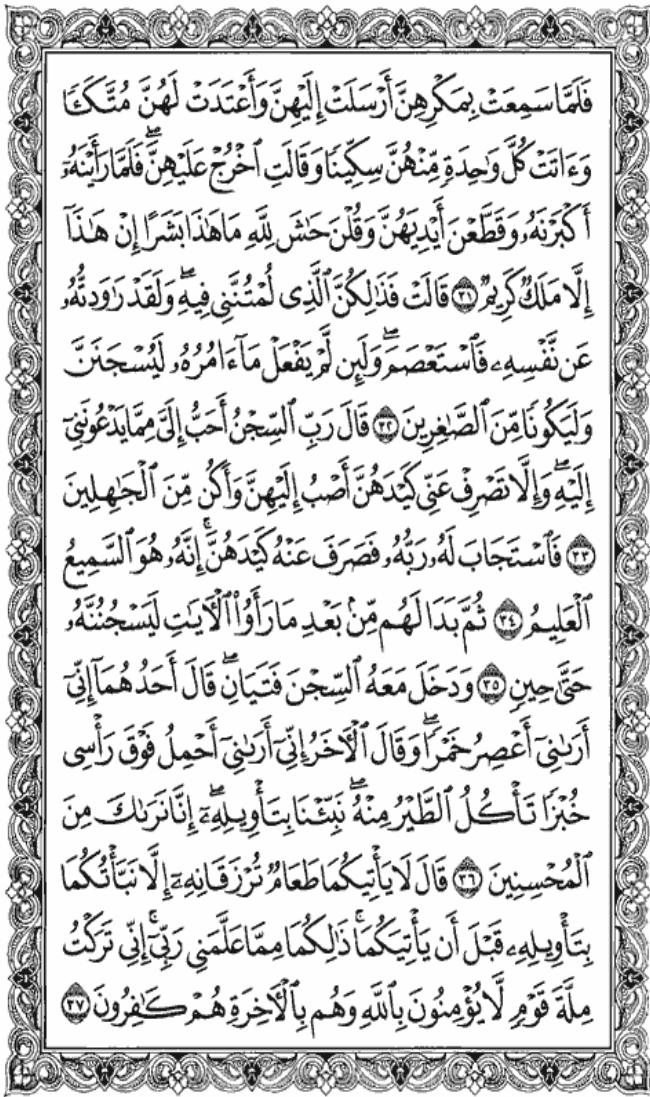 فَلَمَّا سَمِعَتْ بِمَكْرِهِنَّ أَرْسَلَتْ إِلَيْهِنَّ وَأَعْتَدَتْ لَهُنَّ مُتَّكَـًٔا
وَءَاتَتْ كُلَّ وَٰحِدَةٍ مِّنْهُنَّ سِكِّينًا وَقَالَتِ ٱخْرُجْ عَلَيْهِنَّ ۖ فَلَمَّا رَأَيْنَهُۥٓ
أَكْبَرْنَهُۥ وَقَطَّعْنَ أَيْدِيَهُنَّ وَقُلْنَ حَـٰشَ لِلَّهِ مَا هَـٰذَا بَشَرًا إِنْ هَـٰذَآ
إِلَّا مَلَكٌ كَرِيمٌ ٣١ قَالَتْ فَذَٰلِكُنَّ ٱلَّذِى لُمْتُنَّنِى فِيهِ ۖ وَلَقَدْ رَٰوَدتُّهُۥ
عَن نَّفْسِهِۦ فَٱسْتَعْصَمَ ۖ وَلَئِن لَّمْ يَفْعَلْ مَآ ءَامُرُهُۥ لَيُسْجَنَنَّ
وَلَيَكُونًا مِّنَ ٱلصَّـٰغِرِينَ ٣٢ قَالَ رَبِّ ٱلسِّجْنُ أَحَبُّ إِلَىَّ مِمَّا يَدْعُونَنِىٓ
إِلَيْهِ ۖ وَإِلَّا تَصْرِفْ عَنِّى كَيْدَهُنَّ أَصْبُ إِلَيْهِنَّ وَأَكُن مِّنَ ٱلْجَـٰهِلِينَ
٣٣ فَٱسْتَجَابَ لَهُۥ رَبُّهُۥ فَصَرَفَ عَنْهُ كَيْدَهُنَّ ۚ إِنَّهُۥ هُوَ ٱلسَّمِيعُ
ٱلْعَلِيمُ ٣٤ ثُمَّ بَدَا لَهُم مِّنۢ بَعْدِ مَا رَأَوُا۟ ٱلْـَٔايَـٰتِ لَيَسْجُنُنَّهُۥ
حَتَّىٰ حِينٍ ٣٥ وَدَخَلَ مَعَهُ ٱلسِّجْنَ فَتَيَانِ ۖ قَالَ أَحَدُهُمَآ إِنِّىٓ
أَرَىٰنِىٓ أَعْصِرُ خَمْرًا ۖ وَقَالَ ٱلْـَٔاخَرُ إِنِّىٓ أَرَىٰنِىٓ أَحْمِلُ فَوْقَ رَأْسِى
خُبْزًا تَأْكُلُ ٱلطَّيْرُ مِنْهُ ۖ نَبِّئْنَا بِتَأْوِيلِهِۦٓ ۖ إِنَّا نَرَىٰكَ مِنَ
ٱلْمُحْسِنِينَ ٣٦ قَالَ لَا يَأْتِيكُمَا طَعَامٌ تُرْزَقَانِهِۦٓ إِلَّا نَبَّأْتُكُمَا
بِتَأْوِيلِهِۦ قَبْلَ أَن يَأْتِيَكُمَا ۚ ذَٰلِكُمَا مِمَّا عَلَّمَنِى رَبِّىٓ ۚ إِنِّى تَرَكْتُ
مِلَّةَ قَوْمٍ لَّا يُؤْمِنُونَ بِٱللَّهِ وَهُم بِٱلْـَٔاخِرَةِ هُمْ كَـٰفِرُونَ ٣٧